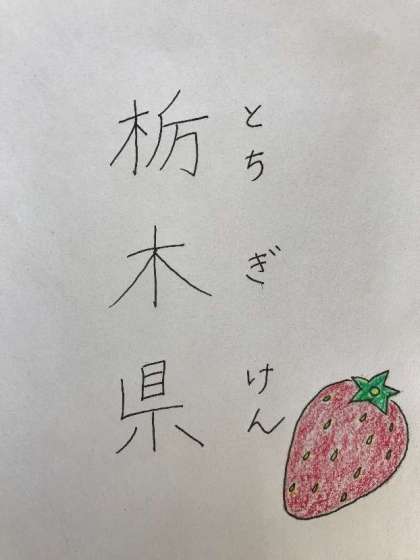 栃木県
とちぎけん